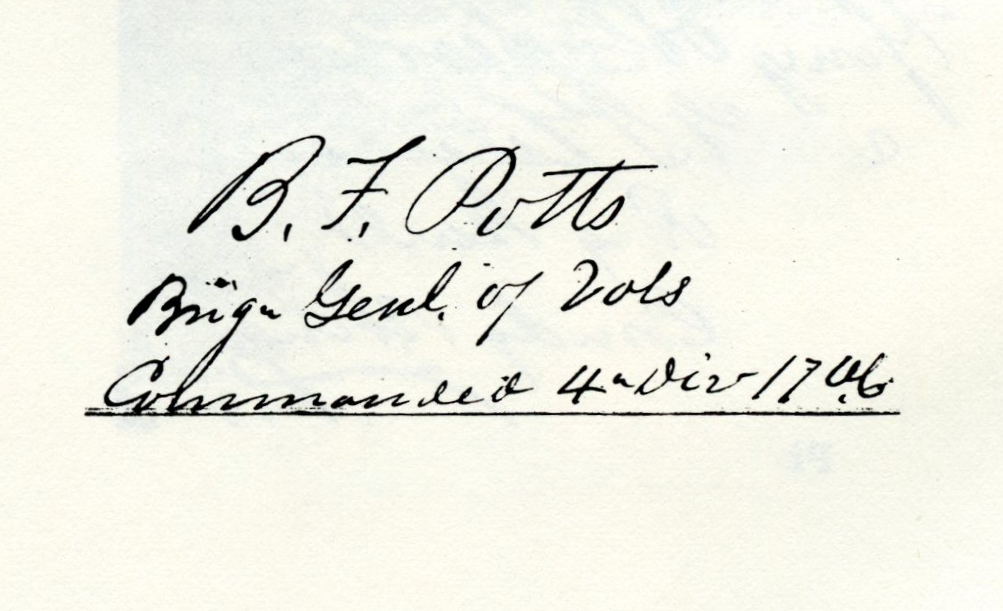 B. F. Potts
Brig Genl. of Vols
Commanded 4 Div 17